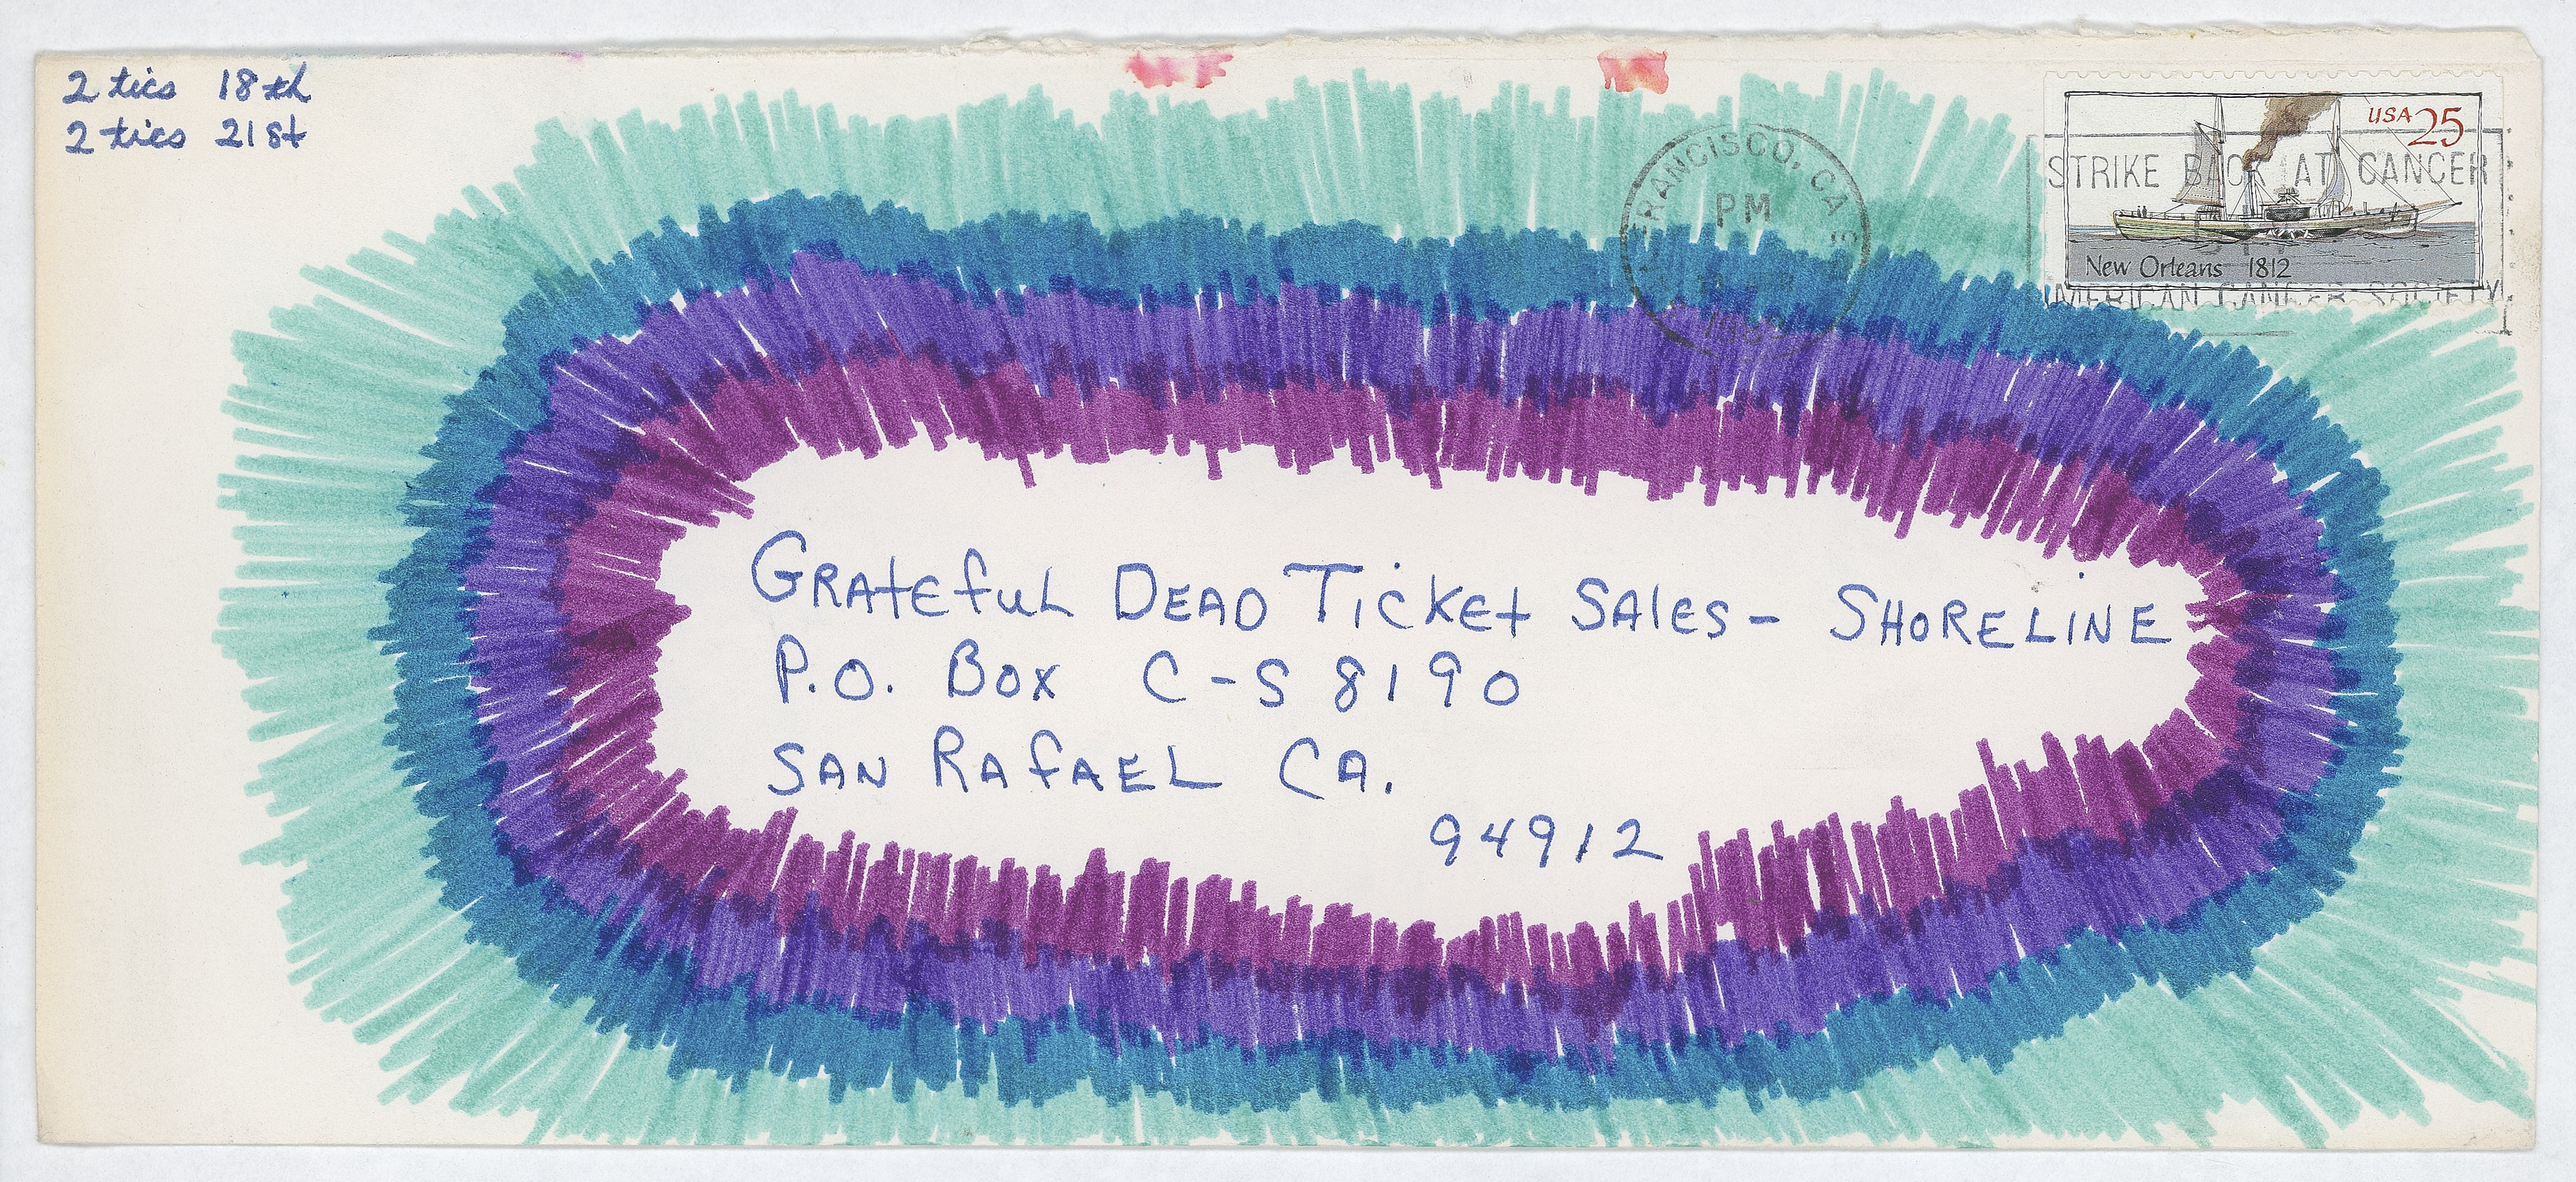 2 tics 18th
2 tics 21st
FRANCISCO, CA
PM
USA 25
STRIKE BACK AT CANCER
New Orleans 1812
AMERICAN CANCER SOCIETY
GRAtEfuL DEAD TickEt SAlEs - SHORELiNE
P.O. Box C-S 8190
SAN RAfAEL CA.
94912